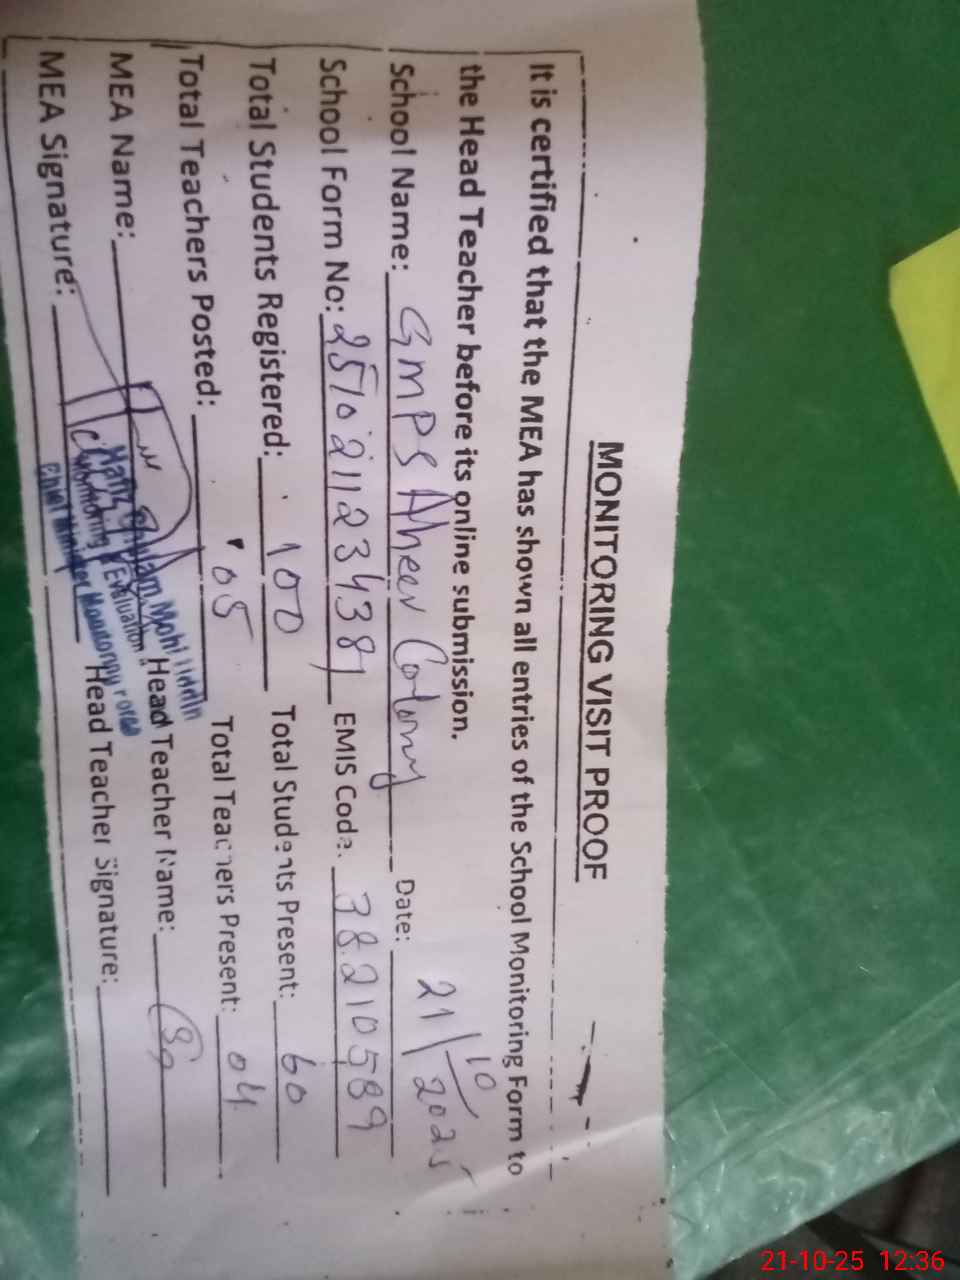 MONITORING VISIT PROOF
It is certified that the MEA has shown all entries of the School Monitoring Form to
the Head Teacher before its online submission.
School Name: GMPS Aheer Colony Date: 21/10/2025
School Form No: 2510211234381 EMIS Code: 38210589
Total Students Registered: 100 Total Students Present: 60
Total Teachers Posted: 05 Total Teachers Present: 04
MEA Name: Hafiz Ghulam Mohi Uddin Head Teacher Name:
Monitoring & Evaluation
MEA Signature: Head Teacher Signature:
Chief Minister Monitoring Force
21-10-25 12:36